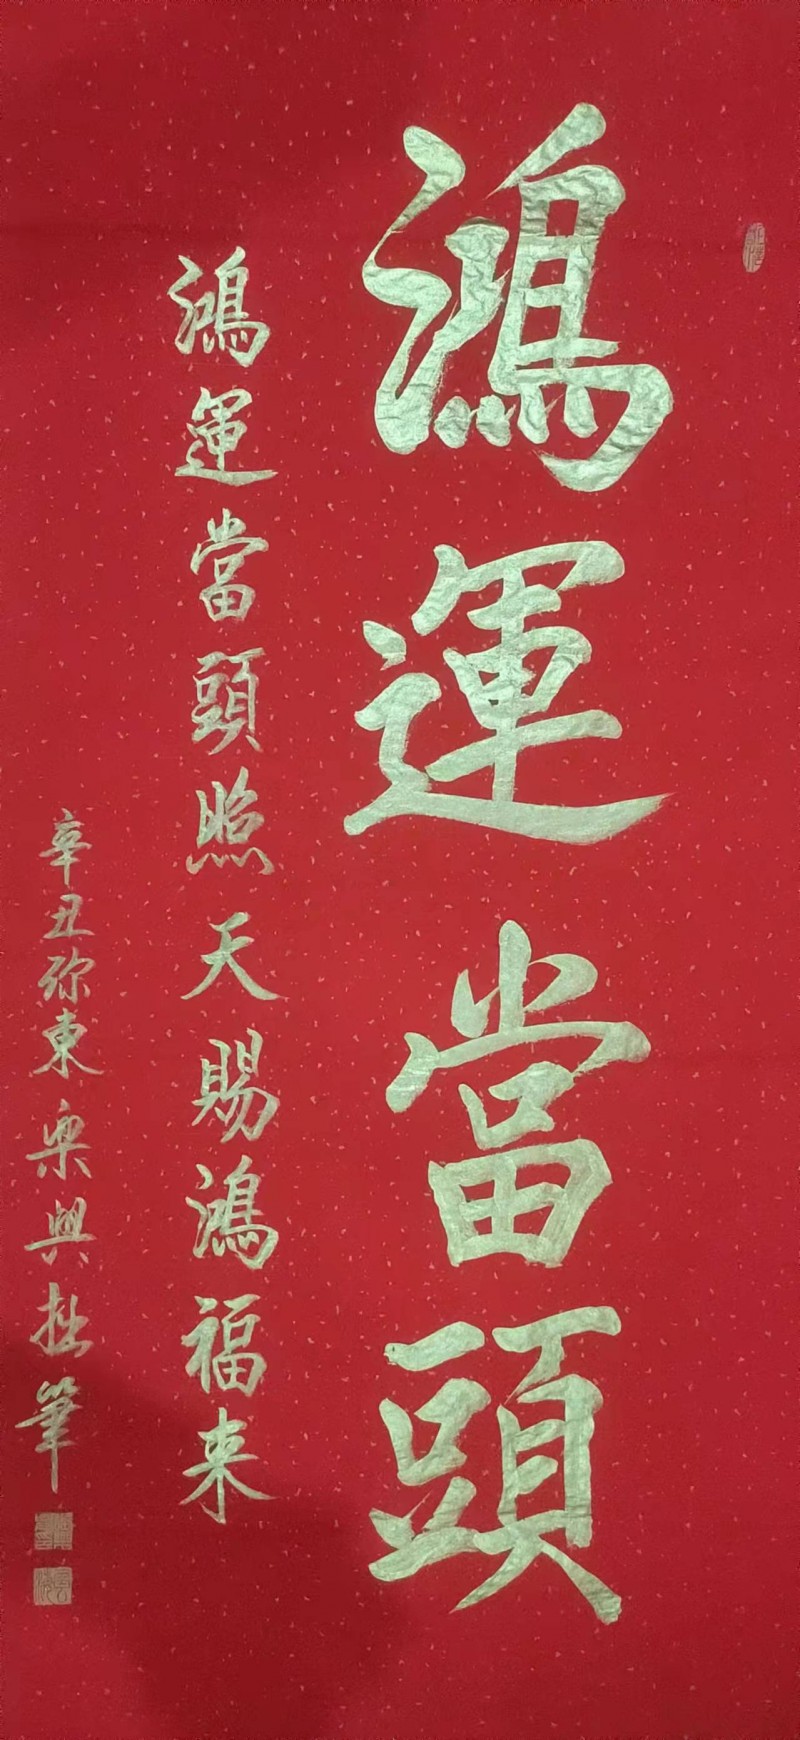 鴻運當頭
鴻運當頭照天賜鴻福来
辛丑弥東樂興拙筆